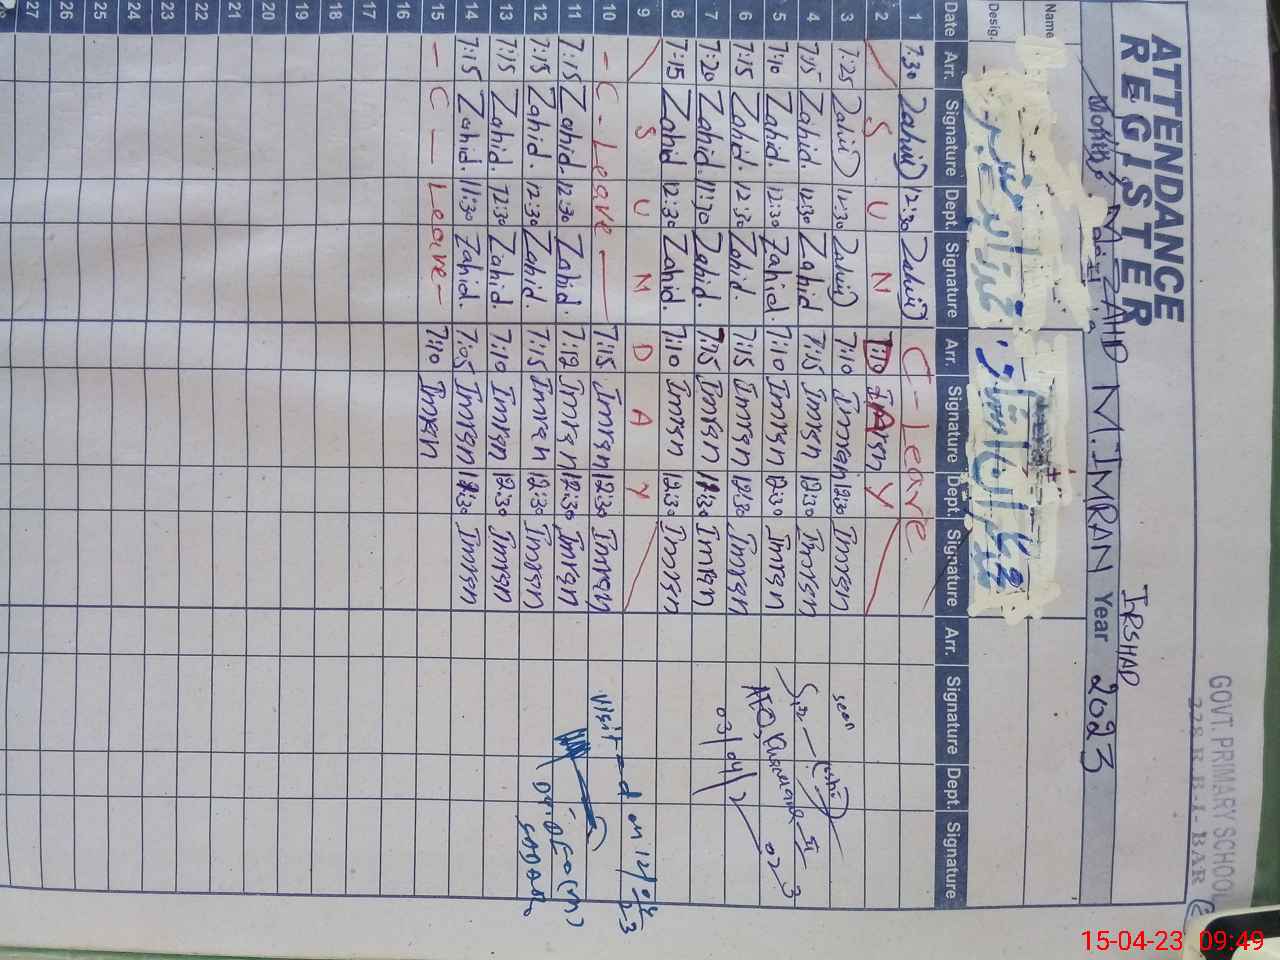 GOVT. PRIMARY SCHOOL
228 R B-I-BAR
ATTENDANCE
REGISTER
IRSHAD
ZAHD M.IMRAN Year 2023
Name
Desig.
Date Arr. Signature Dept. Signature Arr. Signature Dept. Signature Arr. Signature Dept. Signature
1 7:30 Zahid 12:30 Zahid C - Leave
2 S U N 7:10 D Imran A Y
3 7:25 Zahid 12:30 Zahid 7:10 Imran 12:30 Imran
4 7:15 Zahid. 12:30 Zahid 7:15 Imran 12:30 Imran
5 7:10 Zahid. 12:30 Zahid. 7:10 Imran 12:30 Imran
6 7:15 Zahid. 12:30 Zahid. 7:15 Imran 12:30 Imran
7 7:20 Zahid. 11:30 Zahid. 7:15 Imran 11:30 Imran
8 7:15 Zahid 12:30 Zahid. 7:10 Imran 12:30 Imran
9 S U N D A Y
10 - C - Leave 7:15 Imran 12:30 Imran
11 7:15 Zahid. 12:30 Zahid. 7:12 Imran 12:30 Imran
12 7:15 Zahid. 12:30 Zahid. 7:15 Imran 12:30 Imran
13 7:15 Zahid. 12:30 Zahid. 7:10 Imran 12:30 Imran
14 7:15 Zahid. 11:30 Zahid. 7:05 Imran 11:30 Imran
15 - C - Leave - 7:10 Imran
16
17
18
19
20
21
22
23
24
25
26
27
seen
AEO,
03/04/2023
visited on 12/04/23
Dy. DEO(M)
15-04-23 09:49